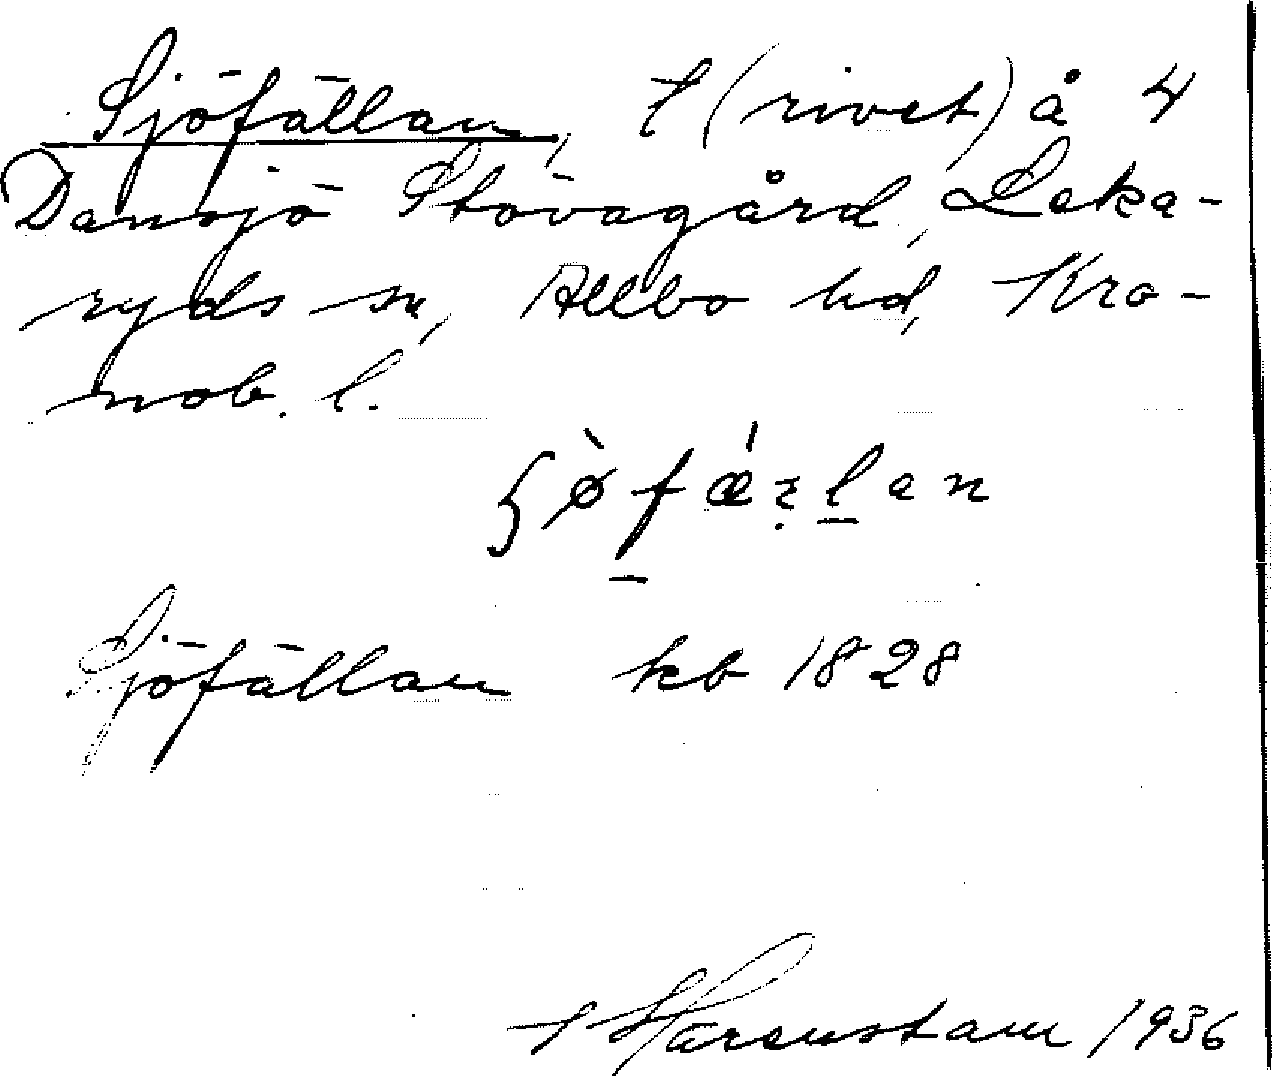 Sjöfällan, t (rivet) å 4
Dansjö Stövagård, Leka-
ryds sn, Allbo hd, Kro-
nob. l.
Sjöfällan kb 1828
Härenstam 1936